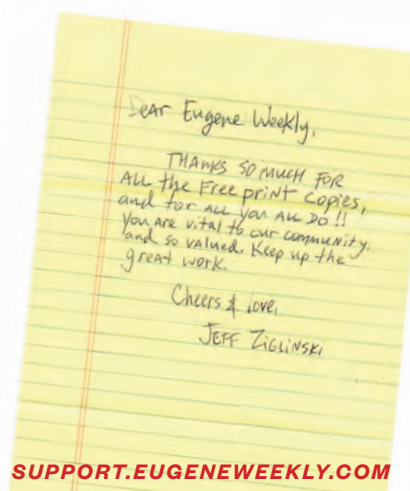 Dear Eugene Weekly,
THANKS SO MUCH FOR
ALL the Free print copies,
and for ALL you ALL DO !!
You are vital to our community,
and so valued. Keep up the
great work.
Cheers & love,
JEFF ZIGLINSKI
SUPPORT.EUGENEWEEKLY.COM